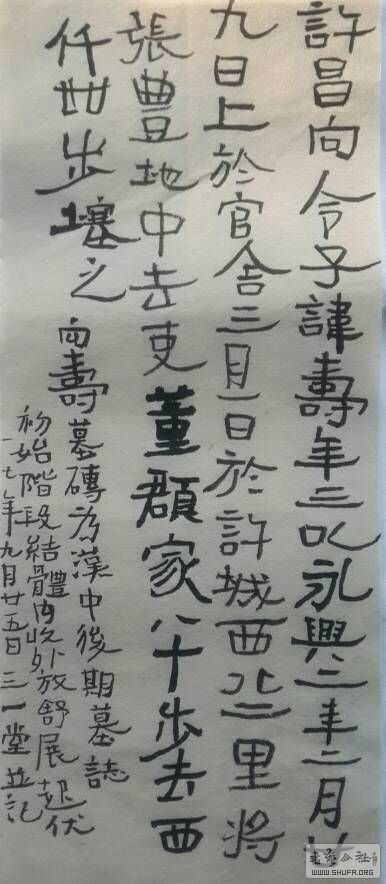 許昌向令子諱壽年三以永興二年二月廿
九日上於官舍三月一日於許城西北二里將
張豊地中去吏董頵家八十步去西
仟丗步之
向壽墓磚為漢中後期墓誌
初始階段結體內收外放舒展起伏
一七年九月廿五日三一堂並記
書藝公社
WWW.SHUFA.ORG